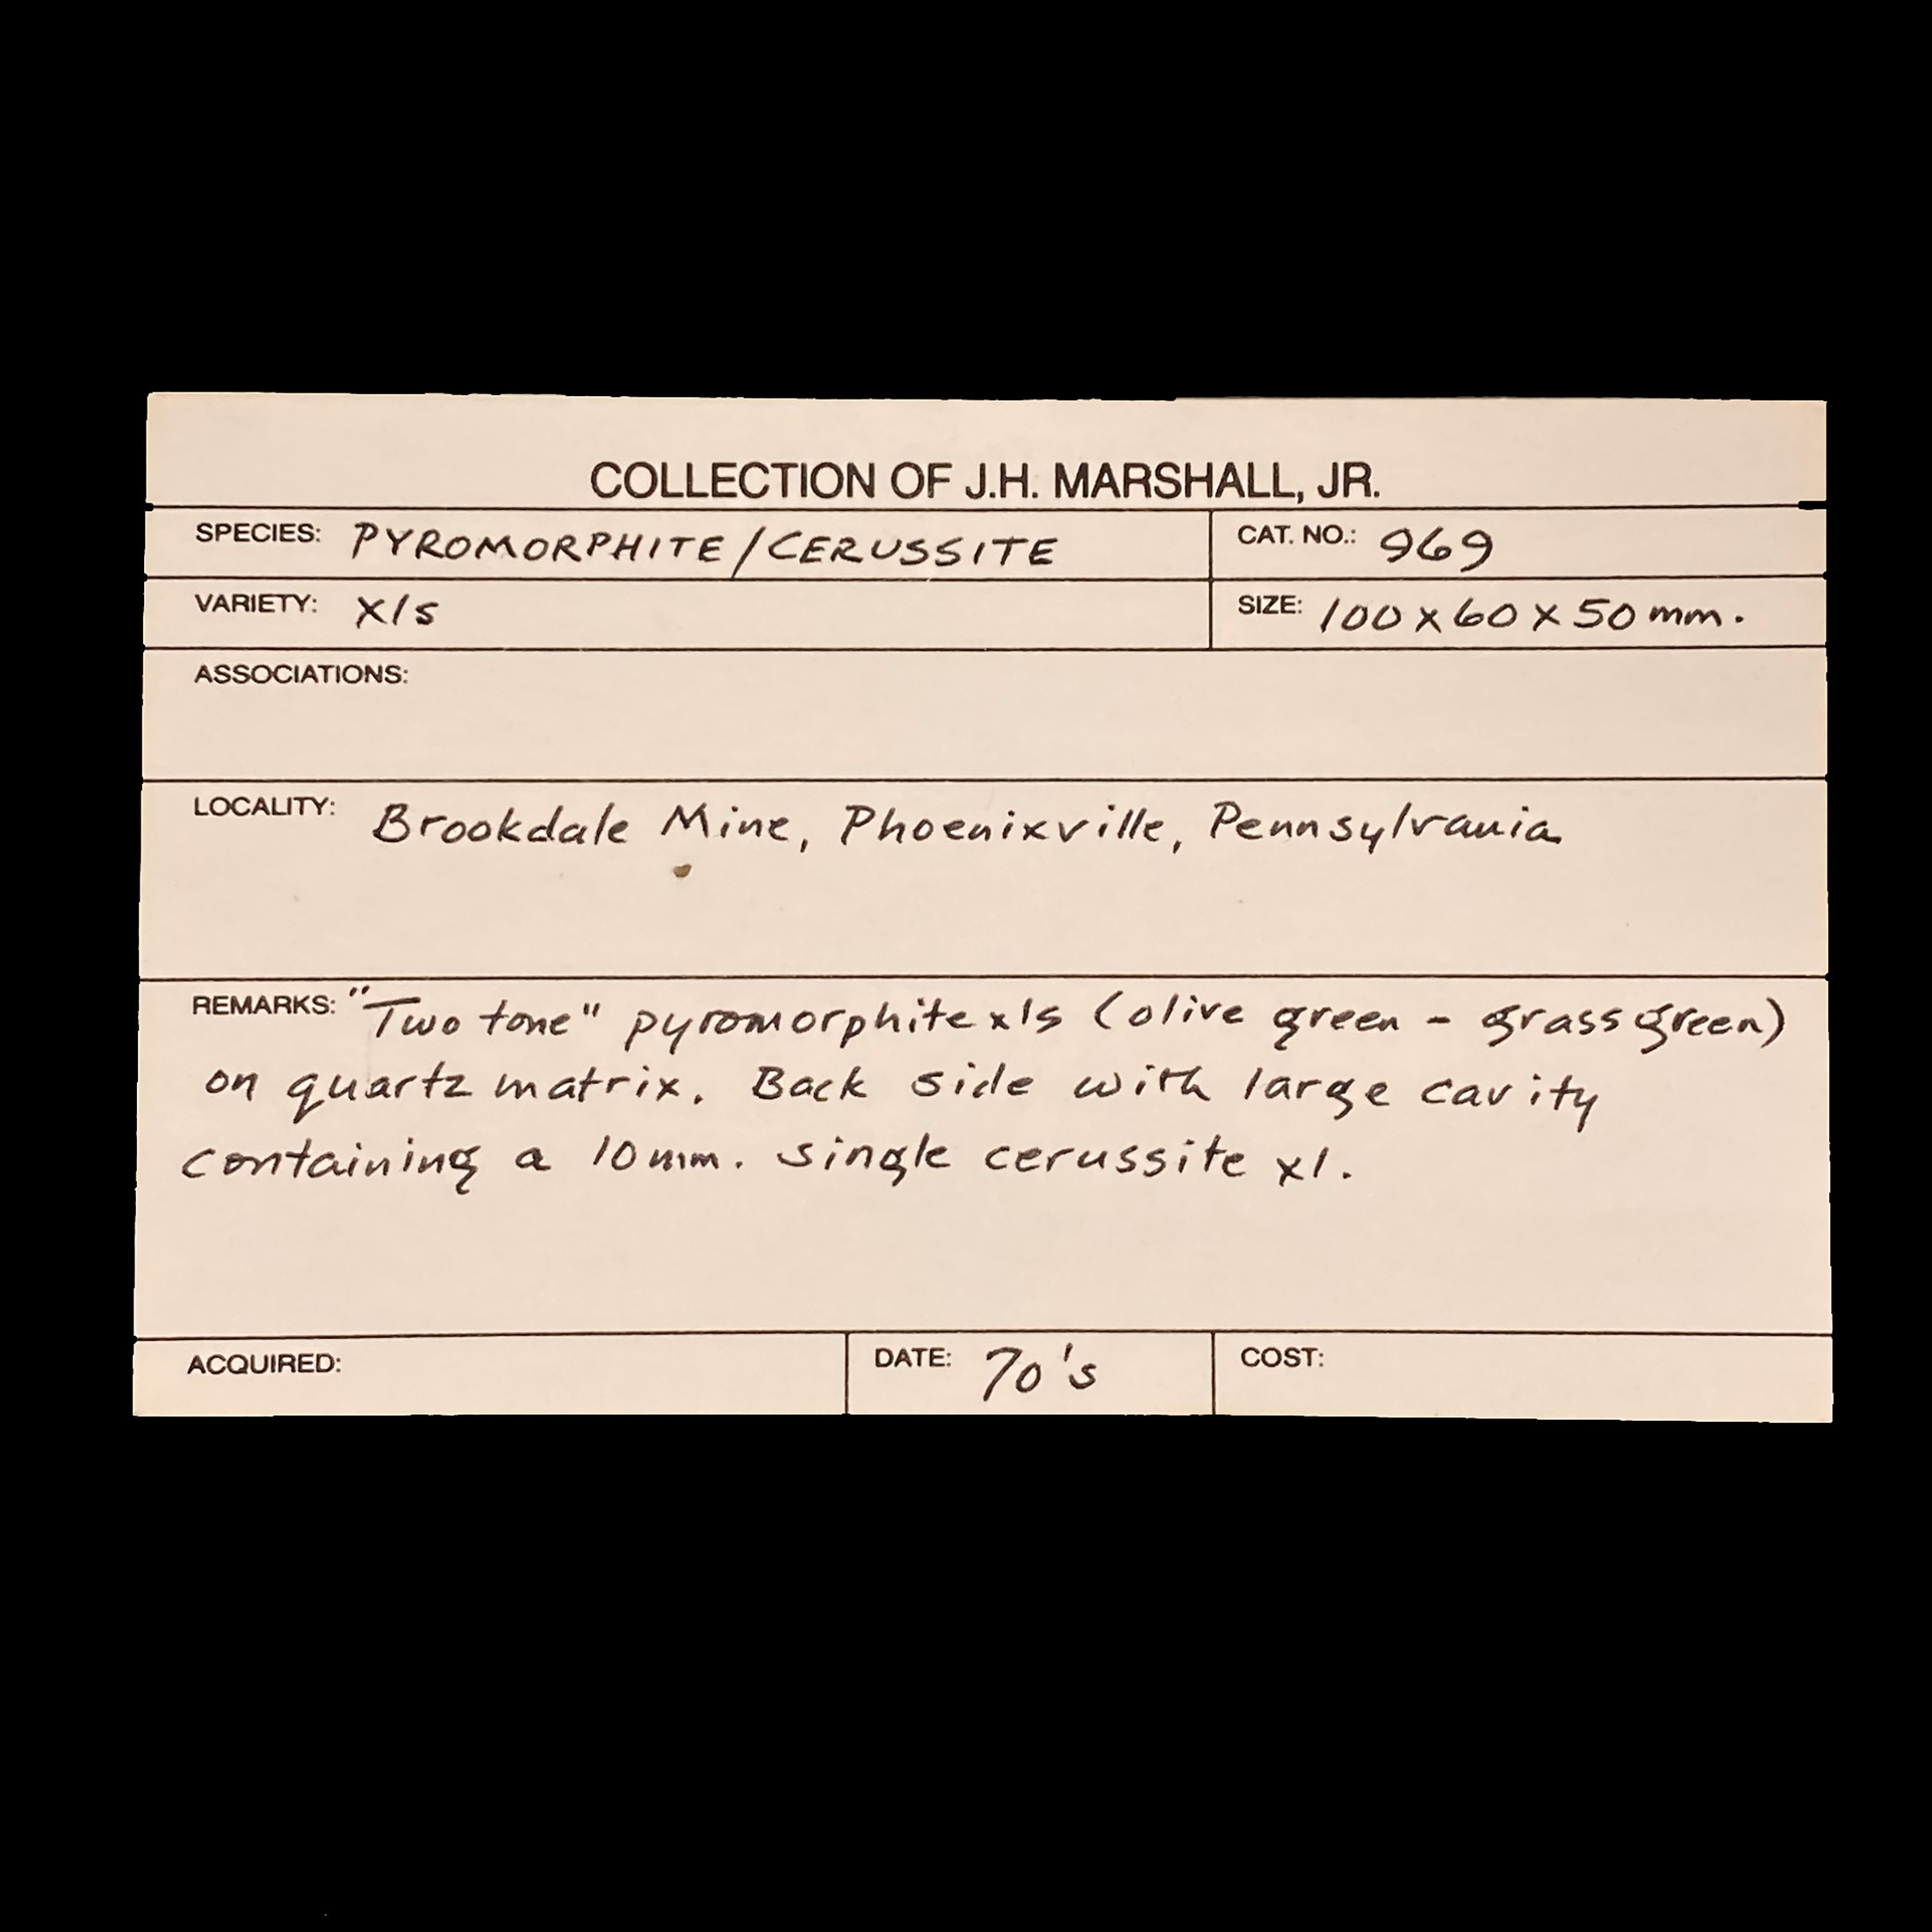 COLLECTION OF J.H. MARSHALL, JR.
SPECIES: PYROMORPHITE/CERUSSITE CAT. NO.: 969
VARIETY: xls SIZE: 100 x 60 x 50 mm.
ASSOCIATIONS:
LOCALITY: Brookdale Mine, Phoenixville, Pennsylvania
REMARKS: "Two tone" pyromorphite xls (olive green - grass green)
on quartz matrix. Back side with large cavity
containing a 10 mm. single cerussite xl.
ACQUIRED: DATE: 70's COST: